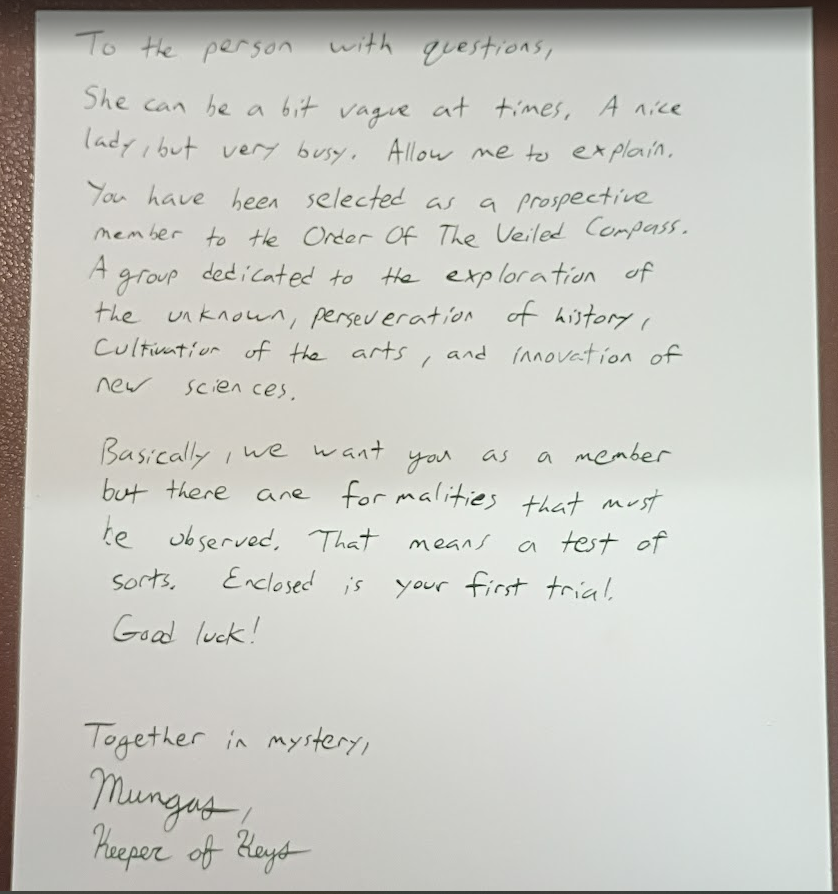 To the person with questions,
She can be a bit vague at times, A nice
lady, but very busy. Allow me to explain.
You have been selected as a prospective
member to the Order Of The Veiled Compass.
A group dedicated to the exploration of
the unknown, perseveration of history,
Cultivation of the arts, and innovation of
new sciences.
Basically, we want you as a member
but there are formalities that must
be observed. That means a test of
sorts. Enclosed is your first trial.
Good luck!
Together in mystery,
Mungas,
Keeper of Keys